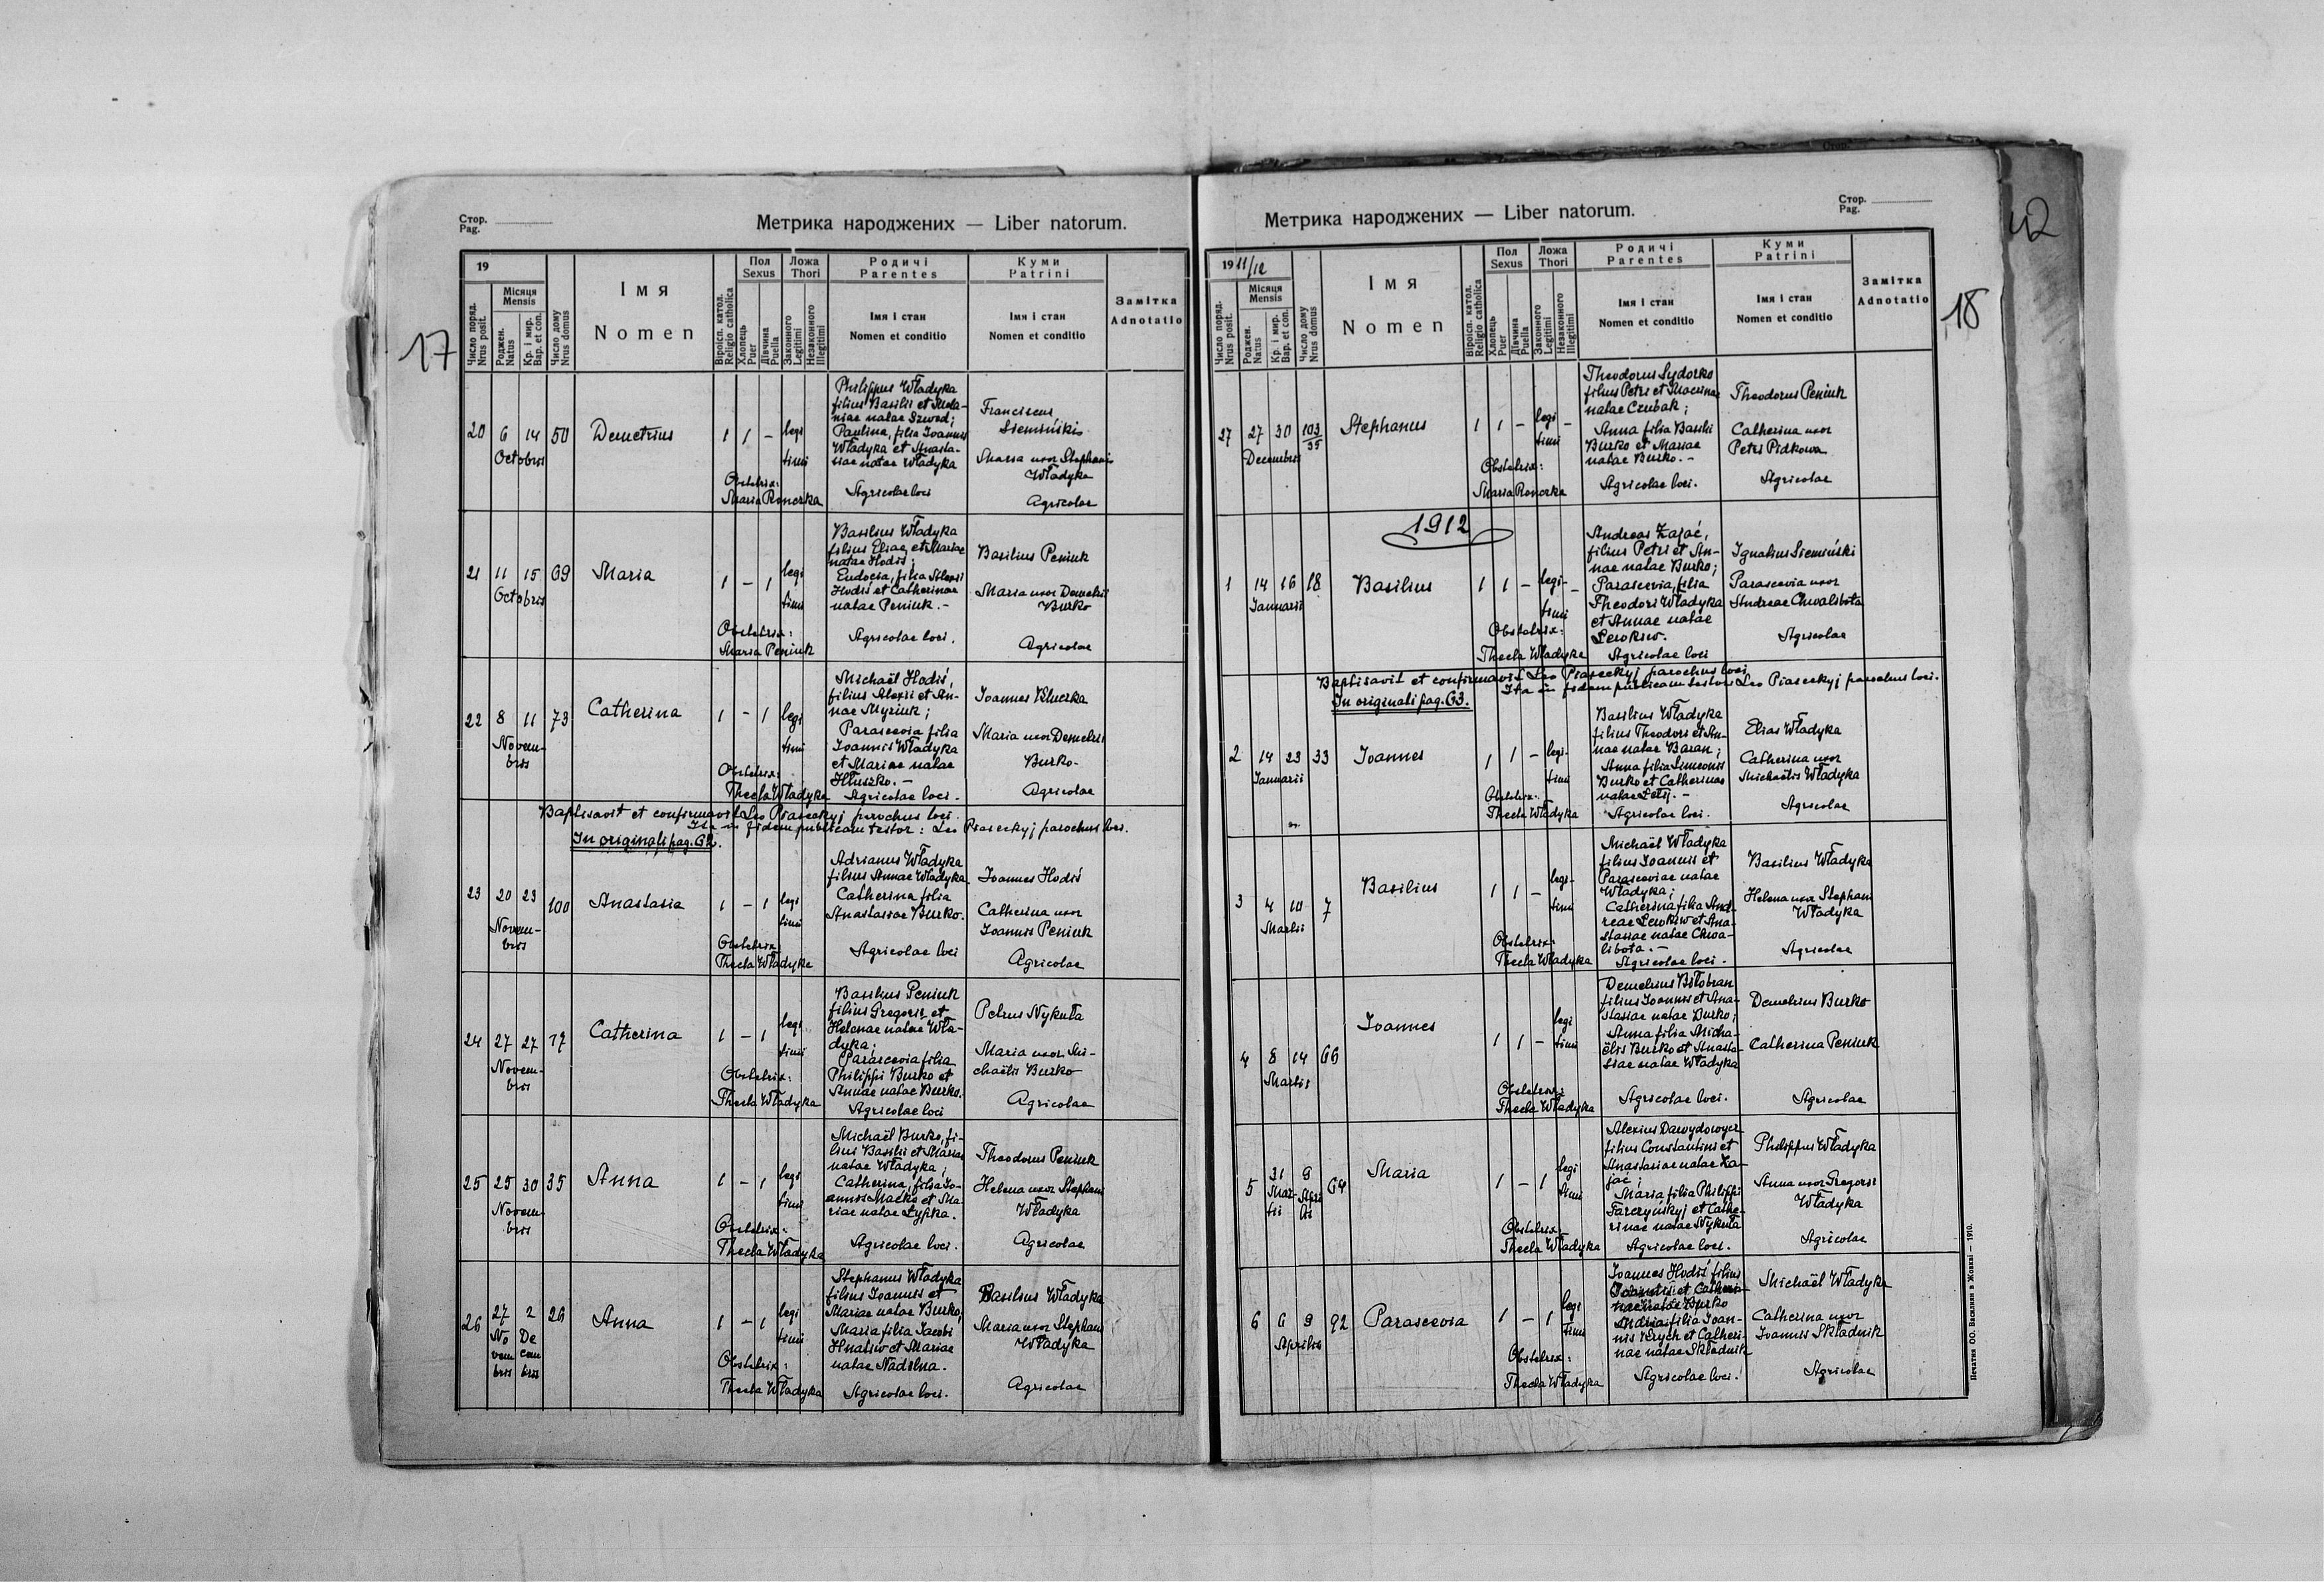 17
Стор.
Pag.
Метрика народжених — Liber natorum.
19
Місяця
Mensis
Число поряд.
Nrus posit.
Роджен.
Natus
Кр. і мир.
Bap. et con.
Число дому
Nrus domus
Імя
Nomen
Віроісп. катол.
Religio catholica
Пол
Sexus
Хлопець
Puer
Дівчина
Puella
Ложа
Thori
Законного
Legitimi
Незаконного
Illegitimi
Родичі
Parentes
Імя і стан
Nomen et conditio
Куми
Patrini
Імя і стан
Nomen et conditio
Замітка
Adnotatio
20 6 14 50 Demetrius 1 1 – legi
timi
Octobris
Obstetrix:
Maria Ronczka
Philippus Władyka
filius Basilii et Mela-
niae natae Szwed;
Paulina, filia Joannis
Władyka et Anasta-
siae natae Władyka
Agricolae loci
Franciscus
Siemiński
Maria uxor Stephani
Władyka
Agricolae
21 11 15 69 Maria 1 – 1 legi
timi
Octobris
Obstetrix:
Maria Peniuk
Basilius Władyka
filius Eliae et Mariae
natae Hodiś;
Eudocia, filia Alexii
Hodiś et Catherinae
natae Peniuk. –
Agricolae loci.
Basilius Peniuk
Maria uxor Demetrii
Burko
Agricolae
22 8 11 73 Catherina 1 – 1 legi
timi
Novem-
bris
Obstetrix:
Thecla Władyka
Michaël Hodiś,
filius Alexii et An-
nae Myziuk;
Parascevia filia
Joannis Władyka
et Mariae natae
Hłuszko. –
Agricolae loci.
Joannes Kluczka
Maria uxor Demetrii
Burko
Agricolae
Baptisavit et confirmavit Leo Piaseckyj parochus loci.
Ita in fidem publicam testor: Leo Piaseckyj parochus loci.
In originali pag. 62.
23 20 23 100 Anastasia 1 – 1 legi
timi
Novem-
bris
Obstetrix:
Thecla Władyka
Adrianus Władyka
filius Annae Władyka
Catherina filia
Anastasiae Burko.
Agricolae loci
Joannes Hodiś
Catherina uxor
Joannis Peniuk
Agricolae
24 27 27 77 Catherina 1 – 1 legi
timi
Novem-
bris
Obstetrix:
Thecla Władyka
Basilius Peniuk
filius Gregorii et
Helenae natae Wła-
dyka;
Parascevia filia
Philippi Burko et
Annae natae Burko.
Agricolae loci
Petrus Nykuła
Maria uxor Mi-
chaëlis Burko
Agricolae
25 25 30 35 Anna 1 – 1 legi
timi
Novem-
bris
Obstetrix:
Thecla Władyka
Michaël Burko, fi-
lius Basilii et Mariae
natae Władyka;
Catherina, filia Jo-
annis Maćko et Ma-
riae natae Łypka.
Agricolae loci.
Theodorus Peniuk
Helena uxor Stephani
Władyka
Agricolae
26 27 2 26 Anna 1 – 1 legi
timi
No De
vem cem
bris bris
Obstetrix:
Thecla Władyka
Stephanus Władyka
filius Joannis et
Mariae natae Burko;
Maria filia Jacobi
Hnatiw et Mariae
natae Nadilna.
Agricolae loci.
Basilius Władyka
Maria uxor Stephani
Władyka
Agricolae
42
18
Стор.
Pag.
Метрика народжених — Liber natorum.
1911/12
Місяця
Mensis
Число поряд.
Nrus posit.
Роджен.
Natus
Кр. і мир.
Bap. et con.
Число дому
Nrus domus
Імя
Nomen
Віроісп. катол.
Religio catholica
Пол
Sexus
Хлопець
Puer
Дівчина
Puella
Ложа
Thori
Законного
Legitimi
Незаконного
Illegitimi
Родичі
Parentes
Імя і стан
Nomen et conditio
Куми
Patrini
Імя і стан
Nomen et conditio
Замітка
Adnotatio
27 27 30 103/35 Stephanus 1 1 – legi –
timi
Decembris
Obstetrix:
Maria Ronczka
Theodorus Sydorko
filius Petri et Macrinae
natae Czubak;
Anna filia Basilii
Burko et Mariae
natae Burko. –
Agricolae loci.
Theodorus Peniuk
Catherina uxor
Petri Pidkowa
Agricolae
1912
1 14 16 18 Basilius 1 1 – legi –
timi
Januarii
Obstetrix:
Thecla Władyka
Andreas Zając,
filius Petri et An-
nae natae Burko;
Parascevia, filia
Theodori Władyka
et Annae natae
Lewkiw.
Agricolae loci
Ignatius Siemiński
Parascevia uxor
Andreae Chwalibota
Agricolae
Baptisavit et confirmavit Leo Piaseckyj parochus loci
Ita in fidem publicam testor Leo Piaseckyj parochus loci.
In originali pag. 63.
2 14 23 33 Joannes 1 1 – legi-
timi
Januarii
Obstetrix:
Thecla Władyka
Basilius Władyka
filius Theodori et An-
nae natae Baran;
Anna filia Simeonis
Burko et Catherinae
Agricolae loci.
Elias Władyka
Catherina uxor
Michaëlis Władyka
Agricolae
3 4 10 7 Basilius 1 1 – legi-
timi
Martii
Obstetrix:
Thecla Władyka
Michaël Władyka
filius Joannis et
Parasceviae natae
Władyka;
Catherina filia And-
reae Lewkiw et Ana-
stasiae natae Chwa-
libota. –
Agricolae loci.
Basilius Władyka
Helena uxor Stephani
Władyka
Agricolae
4 8 14 66 Joannes 1 1 – legi
timi
Martii
Obstetrix:
Thecla Władyka
Demetrius Biłobran
filius Joannis et Ana-
stasiae natae Burko;
Anna filia Micha-
ëlis Burko et Anasta-
siae natae Władyka
Agricolae loci.
Demetrius Burko
Catherina Peniuk
Agricolae
5 31 8 64 Maria 1 – 1 legi
timi
Mar- Apri
tii lis
Obstetrix:
Thecla Władyka
Alexius Dawydowycz
filius Constantini et
Anastasiae natae Za-
jąc;
Maria filia Philippi
Farczyńskyj et Cathe-
rinae natae Nykuła
Agricolae loci.
Philippus Władyka
Anna uxor Gregorii
Władyka
Agricolae
6 6 9 92 Parascevia 1 – 1 legi
timi
Aprilis
Obstetrix:
Thecla Władyka
Joannes Hodiś filius
Joannis et Catheri-
nae natae Burko
Maria filia Joan-
nis Krych et Catheri-
nae natae Składnik
Agricolae loci.
Michaël Władyka
Catherina uxor
Joannis Składnik
Agricolae
Печатня ОО. Василиян в Жовкві — 1910.